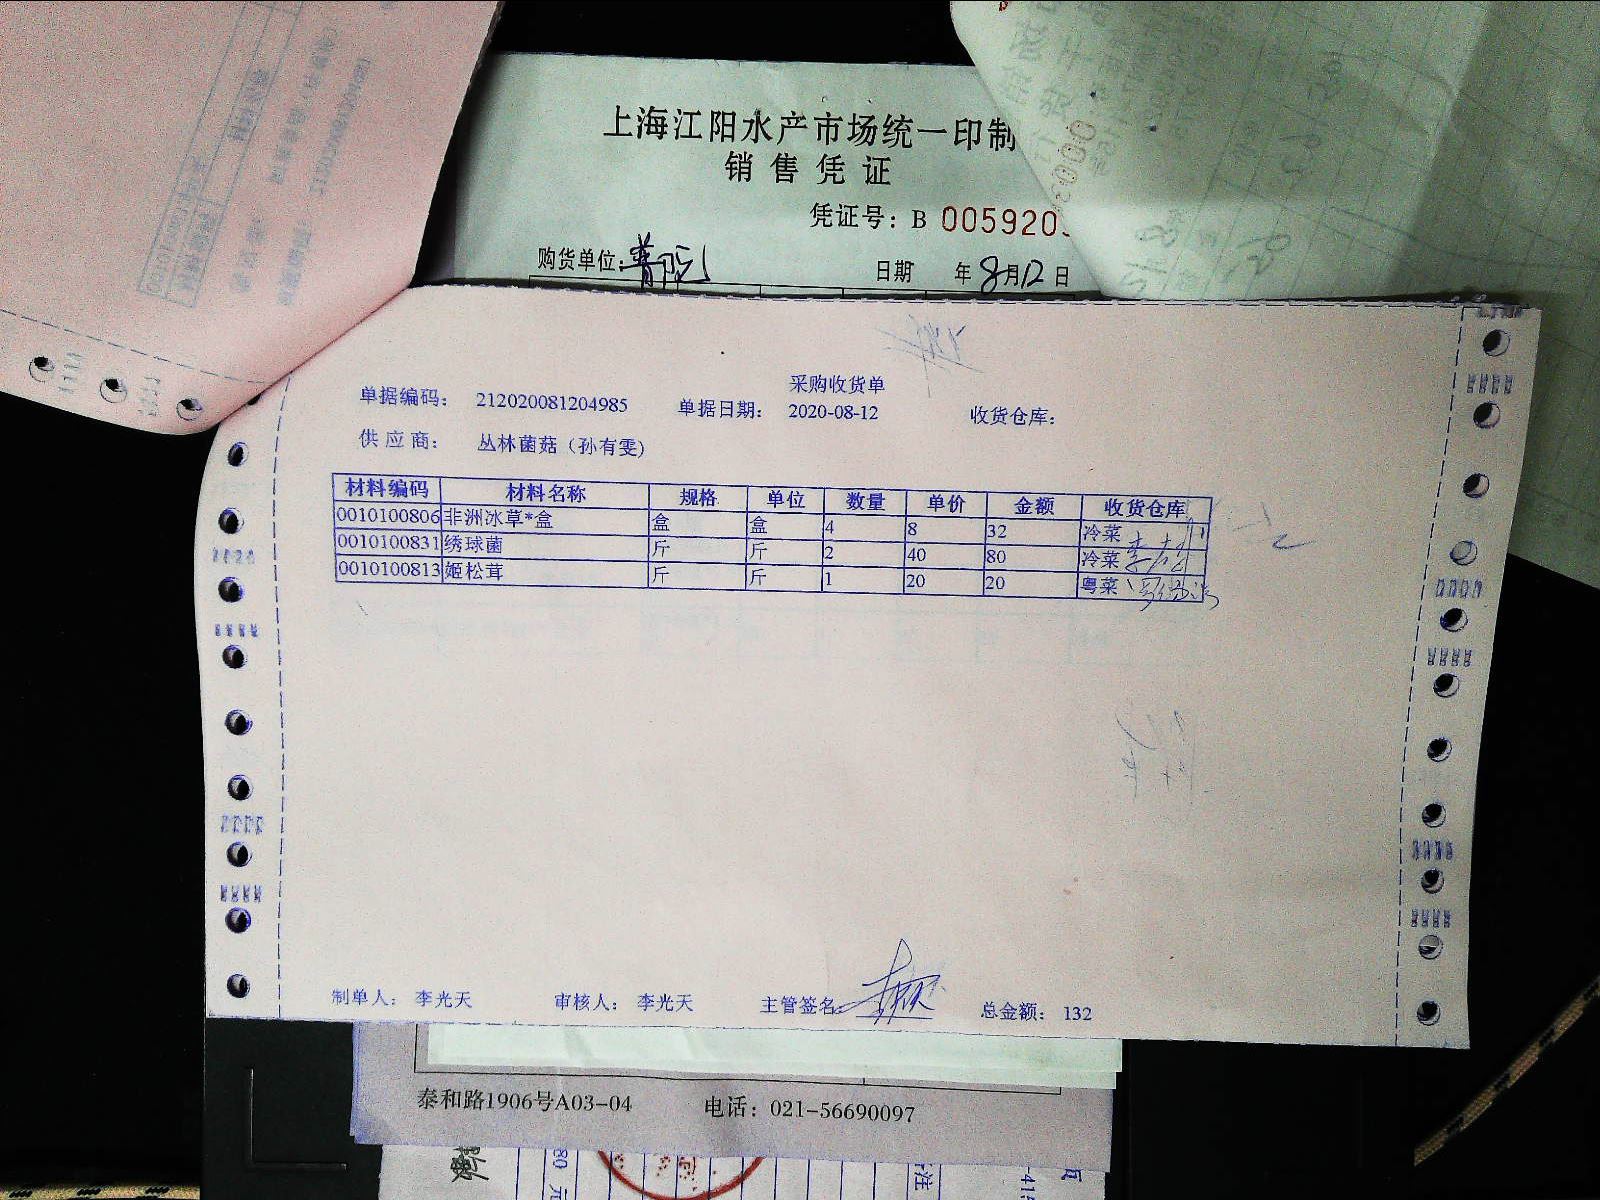 上海江阳水产市场统一印制
销售凭证
凭证号：B 0059205
购货单位： 日期 年8月12日
采购收货单
单据编码： 212020081204985 单据日期： 2020-08-12 收货仓库：
供应商： 丛林菌菇（孙有雯）
材料编码 材料名称 规格 单位 数量 单价 金额 收货仓库
0010100806 非洲冰草*盒 盒 盒 4 8 32 冷菜
0010100831 绣球菌 斤 斤 2 40 80 冷菜
0010100813 姬松茸 斤 斤 1 20 20 粤菜
制单人： 李光天 审核人： 李光天 主管签名： 总金额： 132
泰和路1906号A03-04 电话：021-56690097